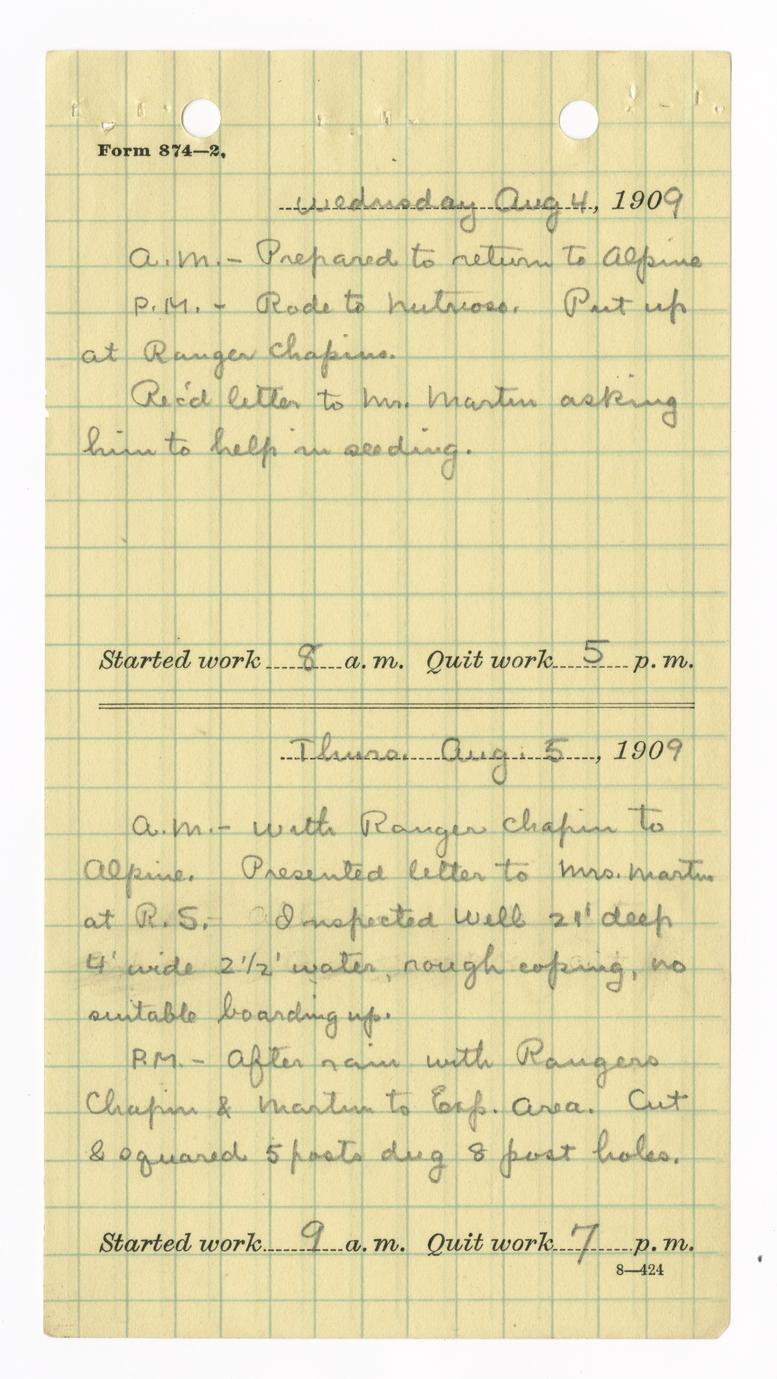 Form 874—2.
Wednesday Aug 4, 1909
A.M. - Prepared to return to Alpine
P.M. - Rode to Nutrioso. Put up
at Ranger Chapins.
Rec'd letter to Mr. Martin asking
him to help in seeding.
Started work 8 a. m. Quit work 5 p. m.
Thurs. Aug. 5, 1909
A.M. - With Ranger Chapin to
Alpine. Presented letter to Mrs. Martin
at R.S. Inspected Well 21' deep
4' wide 2 1/2' water, rough coping, no
suitable boarding up.
P.M. - After rain with Rangers
Chapin & Martin to Exp. Area. Cut
& squared 5 posts dug 8 post holes.
Started work 9 a. m. Quit work 7 p. m.
8—424